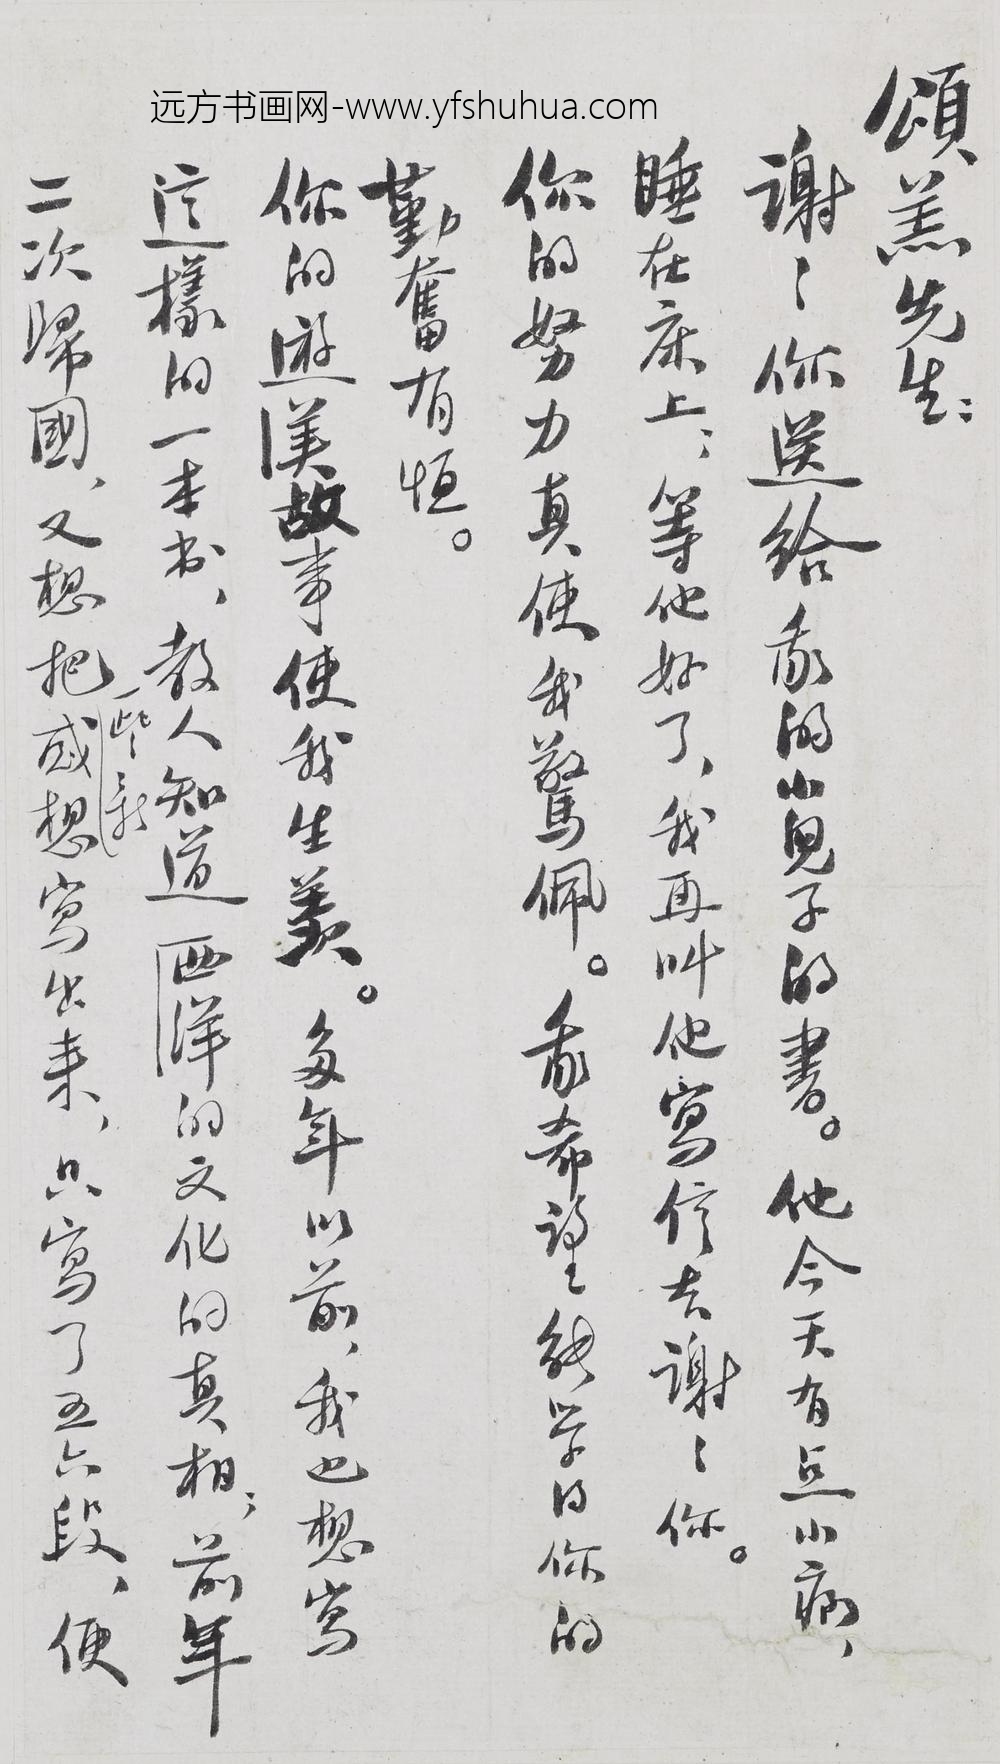 远方书画网-www.yfshuhua.com
頌羔先生：
謝〻你送給我的小兒子的書。他今天有点小病，
睡在床上；等他好了，我再叫他寫信去謝〻你。
你的努力真使我驚佩。我希望能学得你的
勤奮有恒。
你的遊美故事使我生羡。多年以前，我也想寫
這樣的一本书，教人知道西洋的文化的真相；前年
二次歸國，又想把一些新感想寫出来，只寫了五六段，便